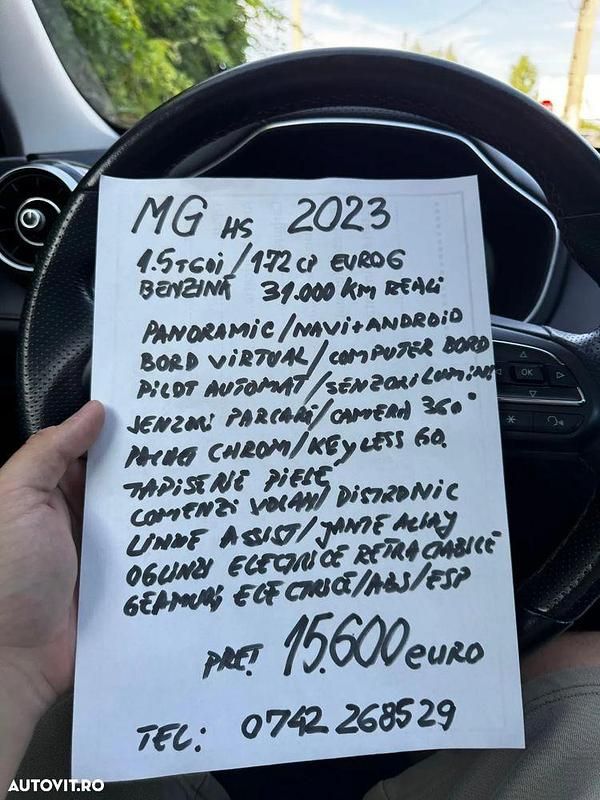 MG HS 2023
1.5 TGDI / 172 CP EURO 6
BENZINĂ 31.000 KM REALI
PANORAMIC / NAVI + ANDROID
BORD VIRTUAL / COMPUTER BORD
PILOT AUTOMAT / SENZORI LUMINI
SENZORI PARCARE / CAMERA 360°
PACHET CHROM / KEYLESS GO.
TAPISERIE PIELE
COMENZI VOLAN / DISTRONIC
LINIE ASSIST / JANTE ALIAJ
OGLINZI ELECTRICE RETRACTABILE
GEAMURI ELECTRICE / ABS / ESP
PREȚ 15.600 EURO
TEL: 0742 268529
OK
AUTOVIT.RO